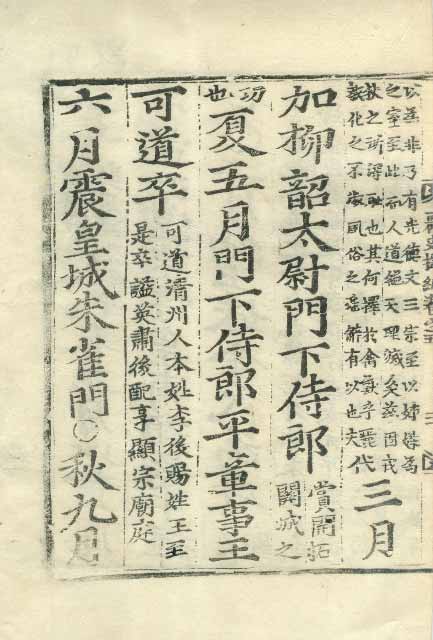 有光德文三宗至以姊妹爲
之室至此而人道絕天理滅矣
狄之所也其何擇於禽獸乎麗代
化之不風俗之有以也夫
三月
加柳韶太尉門下侍郎
賞開拓
關城之
功也
夏五月門下侍郎平章事王
可道卒
可道淸州人本姓李後賜姓王至
是卒謚英肅後配享顯宗廟庭
六月震皇城朱雀門○秋九月